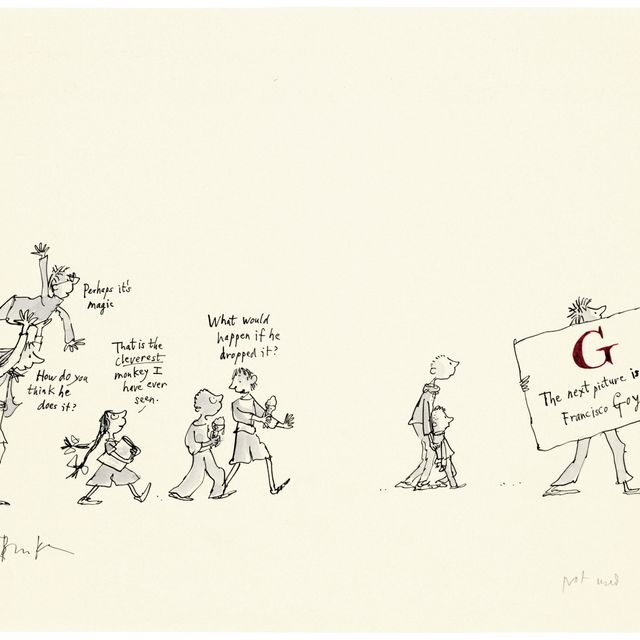 Perhaps it's
magic
How do you
think he
does it?
That is the
cleverest
monkey I
have ever
seen.
What would
happen if he
dropped it?
G
The next picture is
Francisco Goy
not used